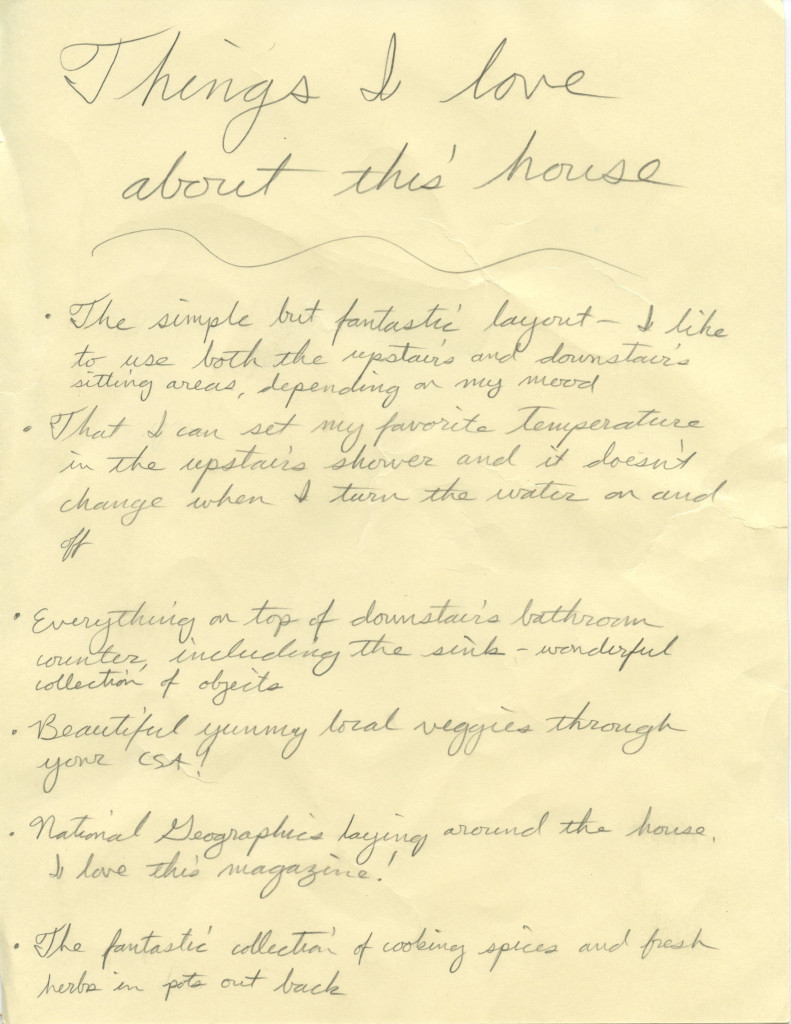 Things I love
about this house
• The simple but fantastic layout – I like
to use both the upstairs and downstairs
sitting areas, depending on my mood
• That I can set my favorite temperature
in the upstairs shower and it doesn't
change when I turn the water on and
off
• Everything on top of downstairs bathroom
counter, including the sink – wonderful
collection of objects
• Beautiful yummy local veggies through
your CSA!
• National Geographics laying around the house.
I love this magazine!
• The fantastic collection of cooking spices and fresh
herbs in pots out back